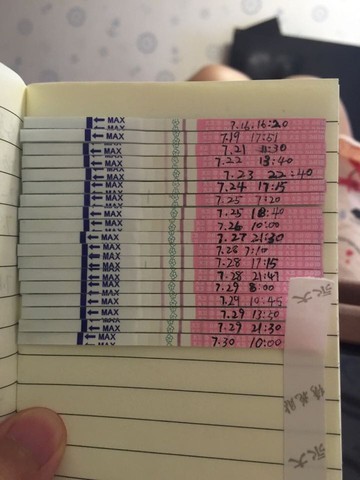 MAX 7.16. 16:20
MAX 7.19 17:51
MAX 7.21 11:30
MAX 7.22 13:40
MAX 7.23 22:40
MAX 7.24 17:15
MAX 7.25 7:20
MAX 7.25 18:40
MAX 7.26 10:00
MAX 7.27 21:30
MAX 7.28 7:10
MAX 7.28 17:15
MAX 7.28 21:47
MAX 7.29 8:00
MAX 7.29 10:45
MAX 7.29 13:30
MAX 7.29 21:30
MAX 7.30 10:00
永大
永大